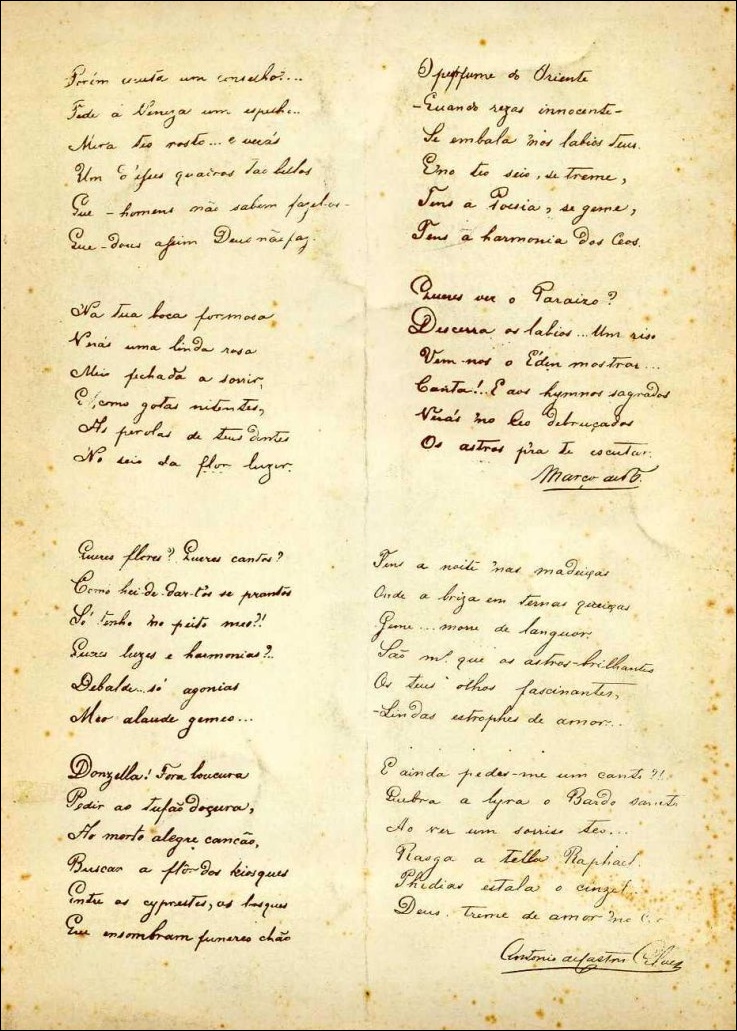 Porém escuta um conselho?...
Pede á Veneza um espelho...
Mira teo rosto... e verás
Um d'esses quadros tão bellos
Que - homens não sabem fazel-os -
Que - dous assim Deus não faz.
Na tua boca formosa
Verás uma linda rosa
Meio fechada a sorrir,
E, como gotas nitentes,
As perolas de teus dentes
No seio da flor luzir.
Queres flores? Queres cantos?
Como hei-de dar-t'os se prantos
Só tenho 'no peito meo?!
Queres luzes e harmonias?..
Debalde.. só agonias
Meo alaude gemeo...
Donzella! Fora loucura
Pedir ao tufão doçura,
Ao morto alegre canção,
Buscar a flor dos kiosques
Entre os cyprestes, os bosques
Que ensombram funereo chão
O perfume do Oriente
- Quando rezas innocente -
Se embala 'nos labios teus.
E 'no teo seio, se treme,
Tens a Poesia, se geme,
Tens a harmonia dos Ceos.
Queres ver o Paraizo?
Descerra os labios... Um riso
Vem-nos o Éden mostrar...
Canta!.. E aos hymnos sagrados
Verás 'no Ceo debruçados
Os astros p'ra te escutar.
Março de
Tens a noite 'nas madeixas
Onde a briza em ternas queixas
Geme... morre de languor.
São m.^s que os astros - brilhantes
Os teus olhos fascinantes,
- Lindas estrophes de amor...
E ainda pedes-me um canto?!.
Quebra a lyra o Bardo santo
Ao ver um sorriso teo...
Rasga a tella Raphael.
Phidias estala o cinzel..
Deus. treme de amor 'no C..
Antonio de Castro Alves